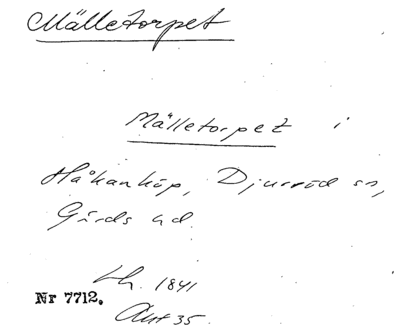 Mälletorpet
Mälletorpet i
Håkanköp, Djurröd sn,
Gärds hd.
Lh. 1841
Nr 7712.
Akt 35.